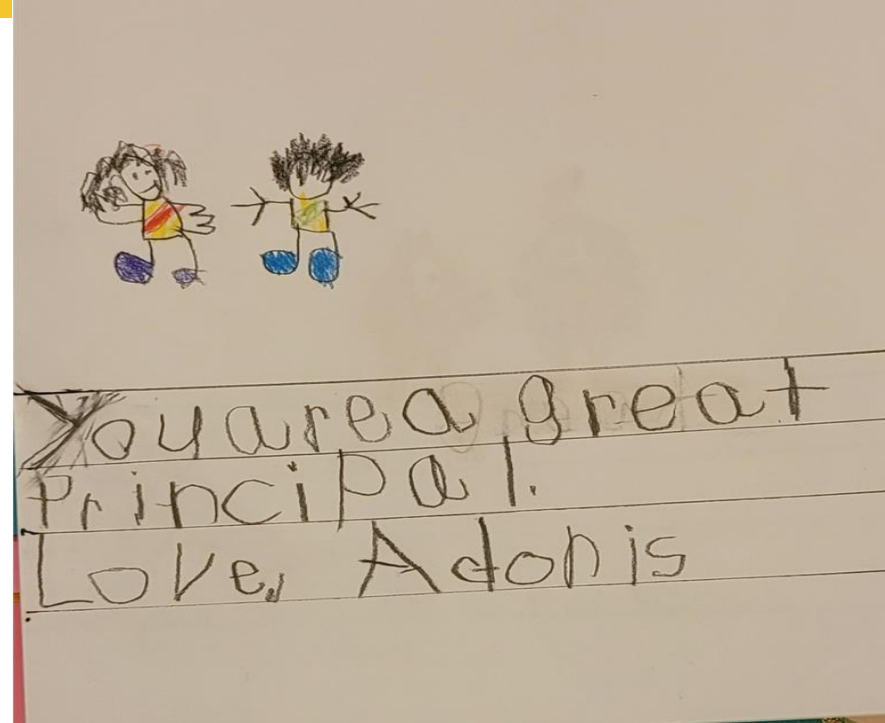 You are a great
Principal.
Love, Adonis